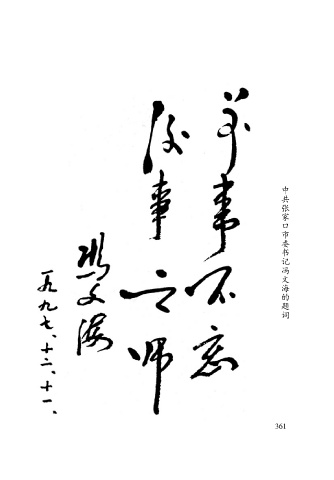 中共张家口市委书记冯文海的题词
前事不忘
后事之师
冯文海
一九九七、十二、十一、
361